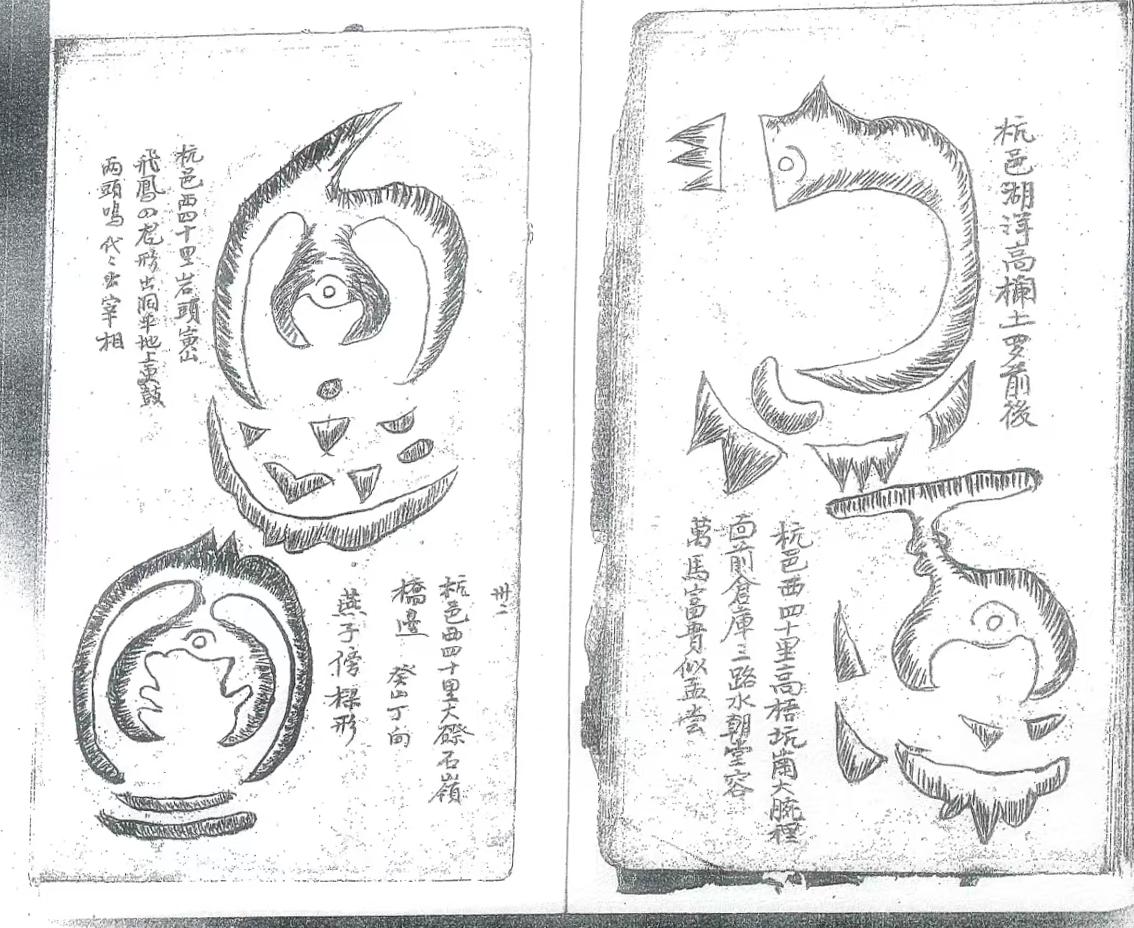 杭邑湖洋高欄土罗前後
杭邑西四十里高梧坑崗大腕裡
面前倉庫三路水朝堂容
萬馬富貴似孟尝
卅二
杭邑西四十里大磜石嶺
橋邊 癸山丁向
燕子傍樑形
杭邑西四十里岩頭寅山
飛鳳 形出洞平地上
两頭鳴代〻出宰相